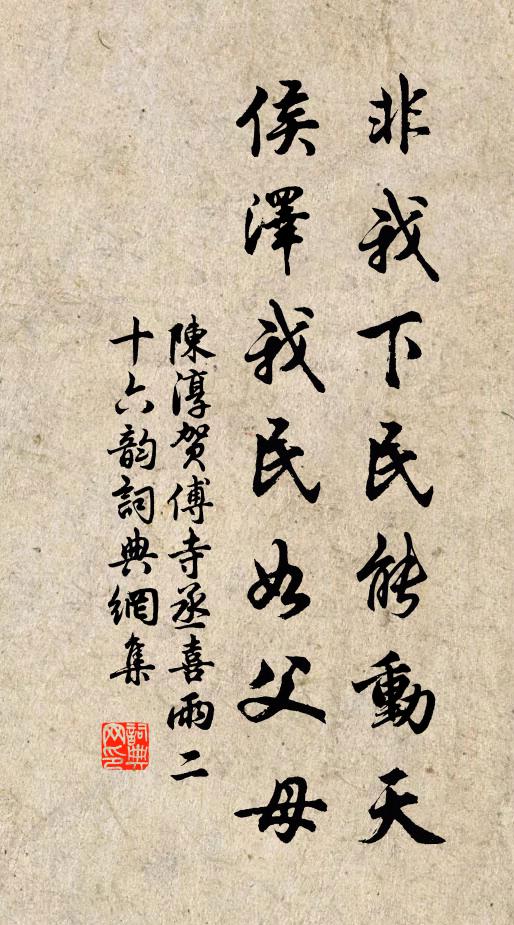 非我下民能動天
侯澤我民如父母
陳淳賀傅寺丞喜雨二
十六韵詞典網集
詞典
网印